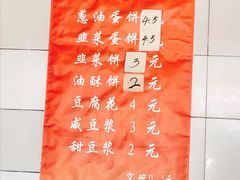 葱油蛋饼 4.5
韭菜蛋饼 4.5元
韭菜饼 3元
油酥饼 2元
豆腐花 4元
咸豆浆 3元
甜豆浆 2元